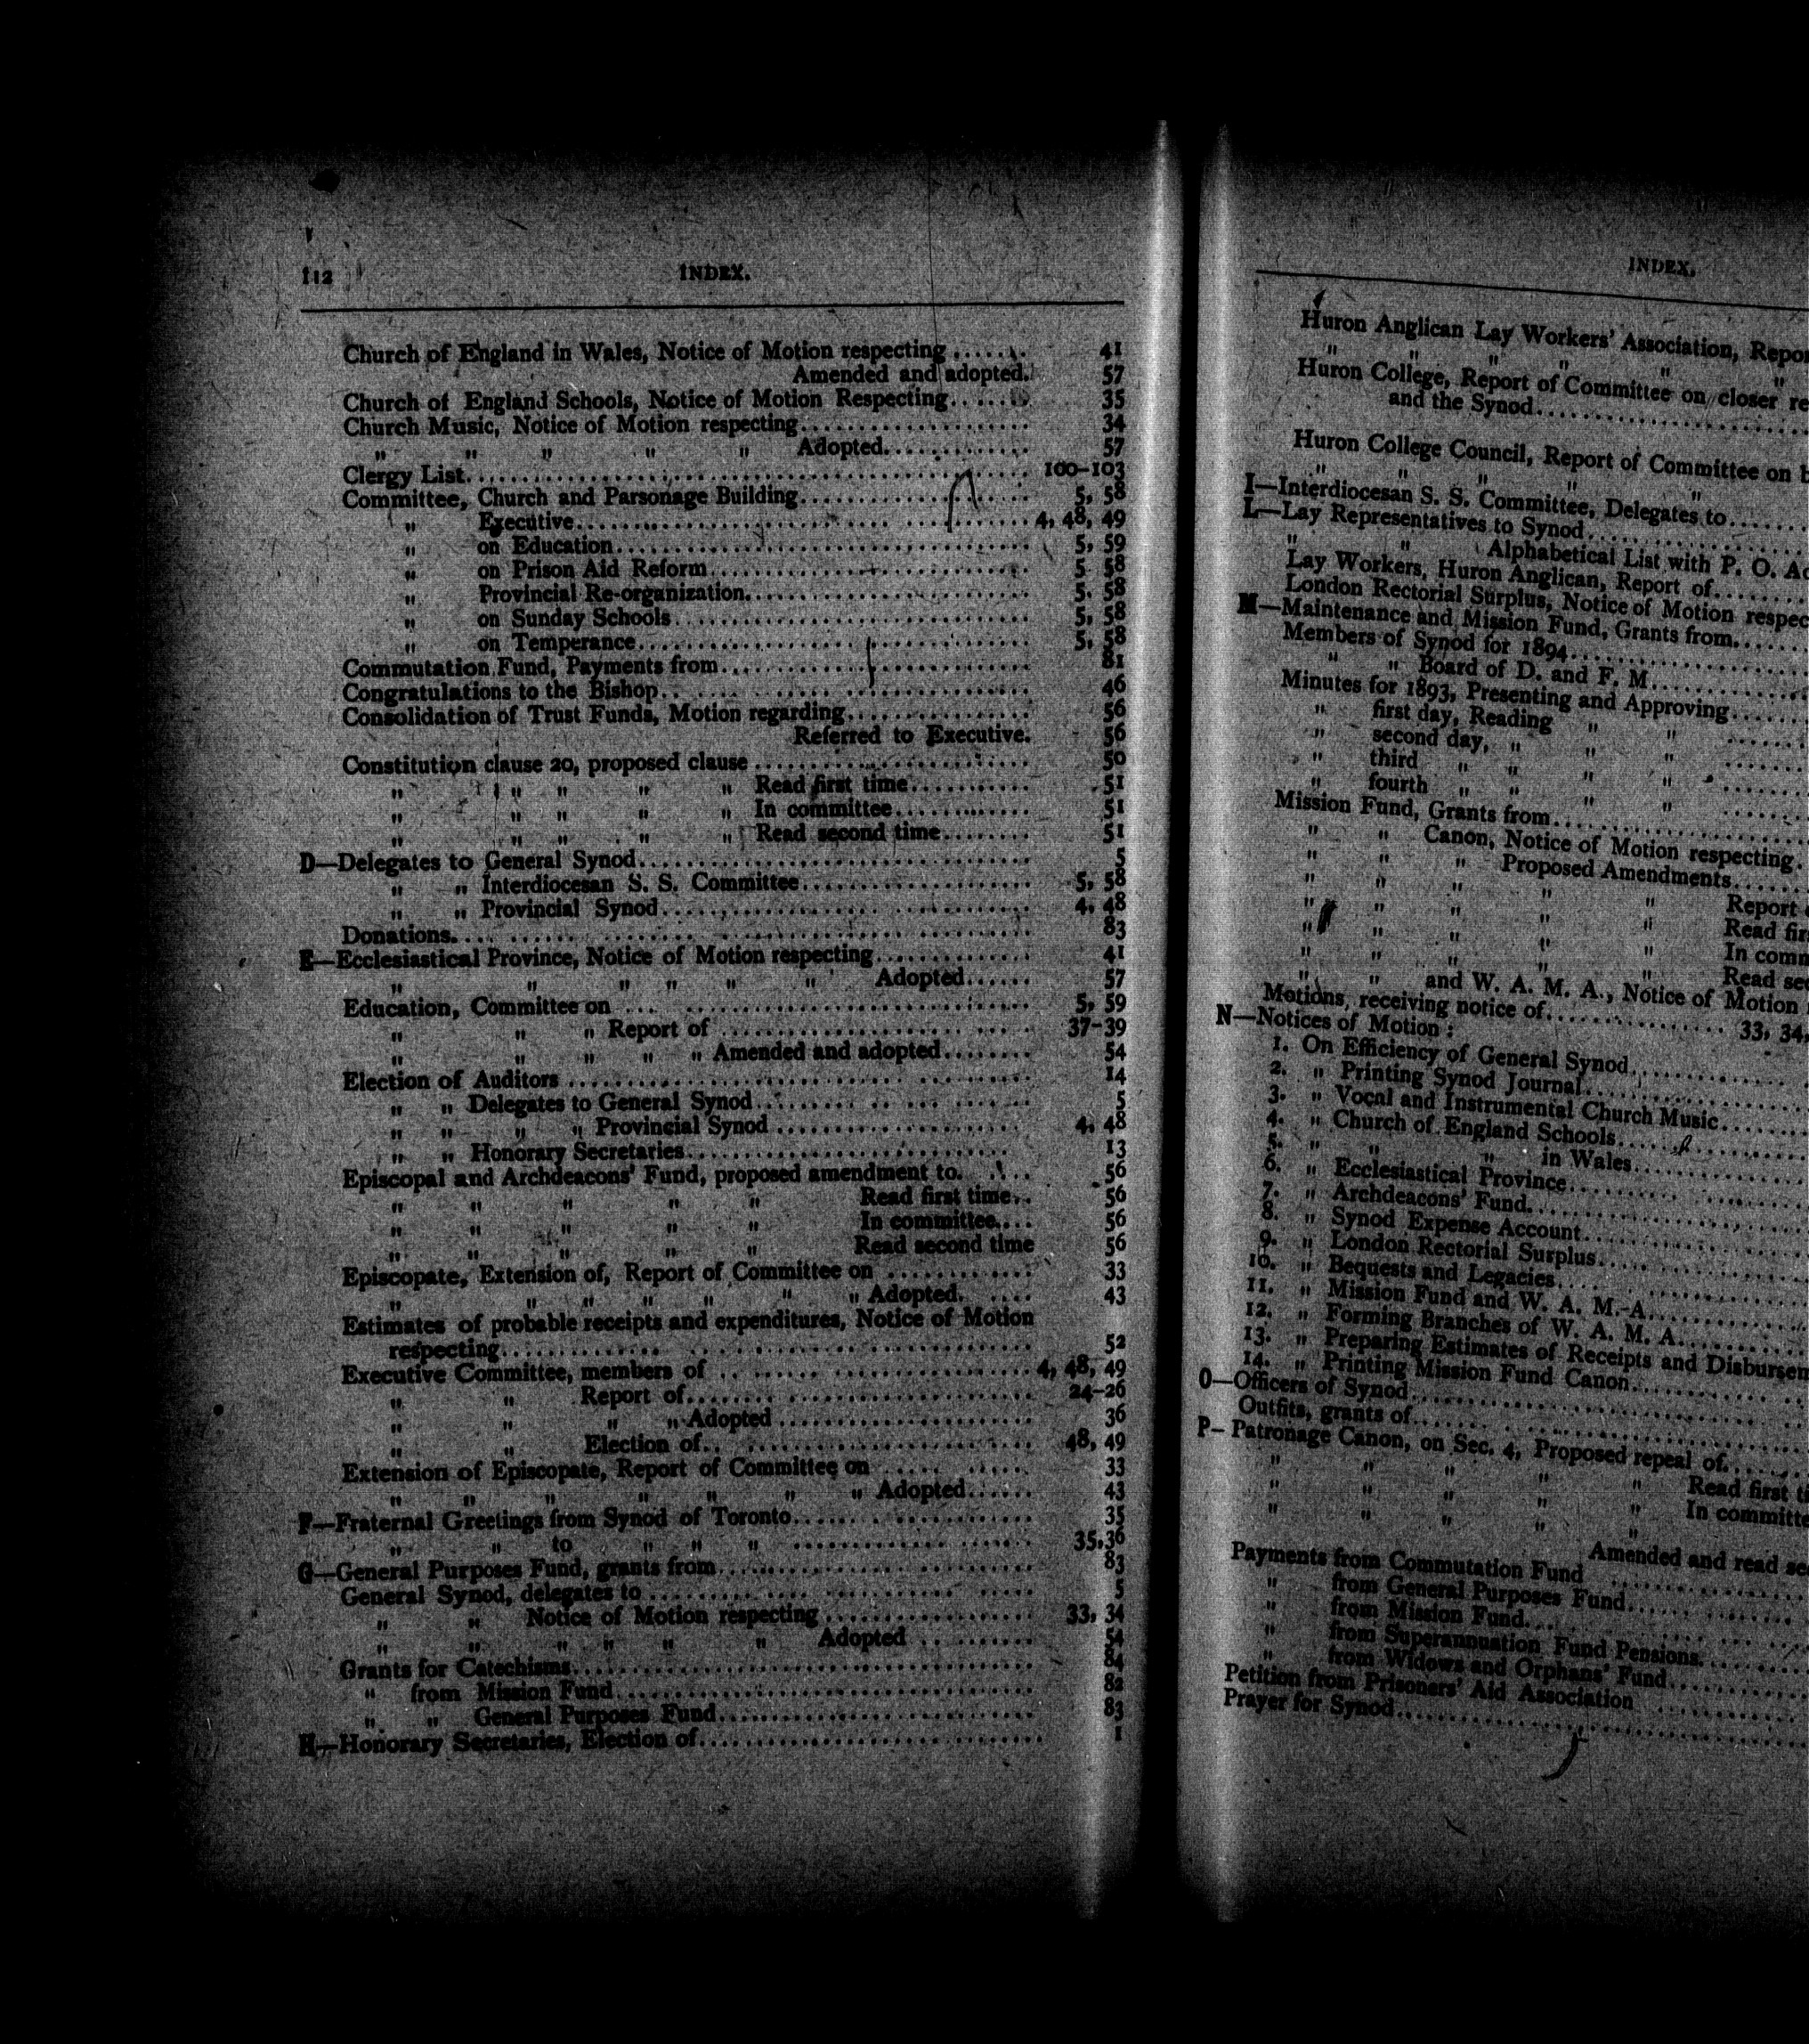 112 INDEX.
Church of England in Wales, Notice of Motion respecting ....... 41
Amended and adopted. 57
Church of England Schools, Notice of Motion Respecting....... 35
Church Music, Notice of Motion respecting.................... 34
" " " " " Adopted............. 57
Clergy List................................................ 100-103
Committee, Church and Parsonage Building.................... 5, 58
" Executive.......................................... 4, 48, 49
" on Education........................................ 5, 59
" on Prison Aid Reform................................ 5 58
" Provincial Re-organization.......................... 5. 58
" on Sunday Schools................................... 5, 58
" on Temperance....................................... 5, 58
Commutation Fund, Payments from............................. 81
Congratulations to the Bishop............................... 46
Consolidation of Trust Funds, Motion regarding.............. 56
Referred to Executive. 56
Constitution clause 20, proposed clause .................... 50
" " " " " Read first time........... 51
" " " " " In committee............. 51
" " " " " Read second time........ 51
D—Delegates to General Synod................................ 5
" " Interdiocesan S. S. Committee................... 5, 58
" " Provincial Synod................................ 4, 48
Donations................................................... 83
E—Ecclesiastical Province, Notice of Motion respecting...... 41
" " " " " " Adopted...... 57
Education, Committee on .................................... 5, 59
" " " Report of ............................ 37-39
" " " " " Amended and adopted........ 54
Election of Auditors ....................................... 14
" " Delegates to General Synod....................... 5
" " " " Provincial Synod ..................... 4, 48
" " Honorary Secretaries............................. 13
Episcopal and Archdeacons' Fund, proposed amendment to. .... 56
" " " " " Read first time.. 56
" " " " " In committee.... 56
" " " " " Read second time 56
Episcopate, Extension of, Report of Committee on ........... 33
" " " " " " " Adopted. .... 43
Estimates of probable receipts and expenditures, Notice of Motion
respecting.................................................. 52
Executive Committee, members of ............................ 4, 48, 49
" " Report of............................... 24-26
" " " " Adopted ...................... 36
" " Election of............................. 48, 49
Extension of Episcopate, Report of Committee on ............ 33
" " " " " " " Adopted...... 43
F—Fraternal Greetings from Synod of Toronto................. 35
" " to " " " .................... 35,36
G—General Purposes Fund, grants from........................ 83
General Synod, delegates to ................................ 5
" " Notice of Motion respecting .................. 33, 34
" " " " " " Adopted .......... 54
Grants for Catechisms....................................... 84
" from Mission Fund.................................... 82
" " General Purposes Fund........................... 83
H—Honorary Secretaries, Election of......................... 1
INDEX.
Huron Anglican Lay Workers' Association, Repor
" " " " " "
Huron College, Report of Committee on closer re
and the Synod.....................
Huron College Council, Report of Committee on b
" " " " "
I—Interdiocesan S. S. Committee, Delegates to........
L—Lay Representatives to Synod....................
" " Alphabetical List with P. O. Ad
Lay Workers, Huron Anglican, Report of.........
London Rectorial Surplus, Notice of Motion respec
M—Maintenance and Mission Fund, Grants from.......
Members of Synod for 1894.....................
" " Board of D. and F. M................
Minutes for 1893, Presenting and Approving........
" first day, Reading " " ........
" second day, " " " ........
" third " " " " ........
" fourth " " " " ........
Mission Fund, Grants from......................
" " Canon, Notice of Motion respecting.
" " " Proposed Amendments.......
" " " " " Report
" " " " " Read fir
" " " " " In comm
" " " " " Read sec
" " and W. A. M. A., Notice of Motion
Motions, receiving notice of................ 33, 34,
N—Notices of Motion :
1. On Efficiency of General Synod...............
2. " Printing Synod Journal.....................
3. " Vocal and Instrumental Church Music........
4. " Church of England Schools..................
5. " " " in Wales.................
6. " Ecclesiastical Province....................
7. " Archdeacons' Fund..........................
8. " Synod Expense Account......................
9. " London Rectorial Surplus...................
10. " Bequests and Legacies.....................
11. " Mission Fund and W. A. M. A...............
12. " Forming Branches of W. A. M. A............
13. " Preparing Estimates of Receipts and Disbursem
14. " Printing Mission Fund Canon...............
O—Officers of Synod..............................
Outfits, grants of...............................
P—Patronage Canon, on Sec. 4, Proposed repeal of........
" " " " " Read first ti
" " " " " In committe
" Amended and read sec
Payments from Commutation Fund ..................
" from General Purposes Fund................
" from Mission Fund.........................
" from Superannuation Fund Pensions.........
" from Widows and Orphans' Fund.............
Petition from Prisoners' Aid Association .........
Prayer for Synod.................................